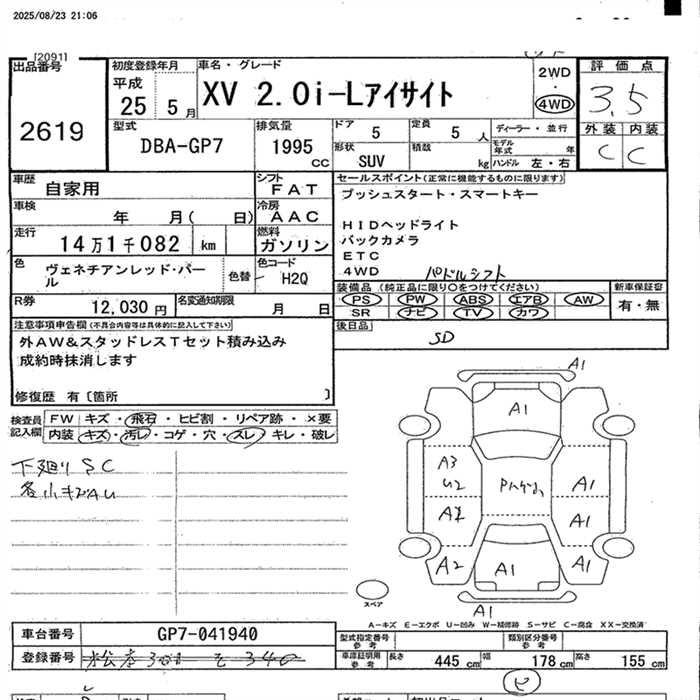 2025/08/23 21:06
[2091]
出品番号
2619
初度登録年月
平成
25 5 月
車名・グレード
XV 2.0i-Lアイサイト
2WD
4WD
評価点
3.5
外装 内装
C C
型式
DBA-GP7
排気量
1995
CC
ドア 5
定員 5 人
形状
SUV
積載
kg
ディーラー・並行
モデル年式 年
ハンドル 左・右
車歴
自家用
シフト
FAT
車検
年 月( 日)
冷房
AAC
走行
14万1千082 km
燃料
ガソリン
色
ヴェネチアンレッド・パール
色替
色コード
H2Q
R券
12,030 円
名変通知期限
月 日
セールスポイント(正常に機能するものに限ります)
プッシュスタート・スマートキー
HIDヘッドライト
バックカメラ
ETC
4WD パドルシフト
装備品 (純正品に限り〇をつけてください)
PS PW ABS エアB AW
SR ナビ TV カワ
新車保証書
有・無
後日品
SD
注意事項申告欄(不具合内容等は具体的に記入して下さい)
外AW&スタッドレスTセット積み込み
成約時抹消します
修復歴 有〔箇所 〕
検査員記入欄
FW キズ・飛石・ヒビ割・リペア跡・×要
内装 キズ・汚レ・コゲ・穴・スレ・キレ・破レ
下廻りSC
各小キズAU
A1
A1
A3
U2
A1
A1
A2
A1
A1
A1
スペア
A1
A-キズ E-エクボ U-凹み W-補修跡 S-サビ C-腐食 XX-交換済
車台番号
GP7-041940
登録番号
型式指定番号
参考
類別区分番号
参考
車庫証明用
参考
長さ 445 cm 幅 178 cm 高さ 155 cm